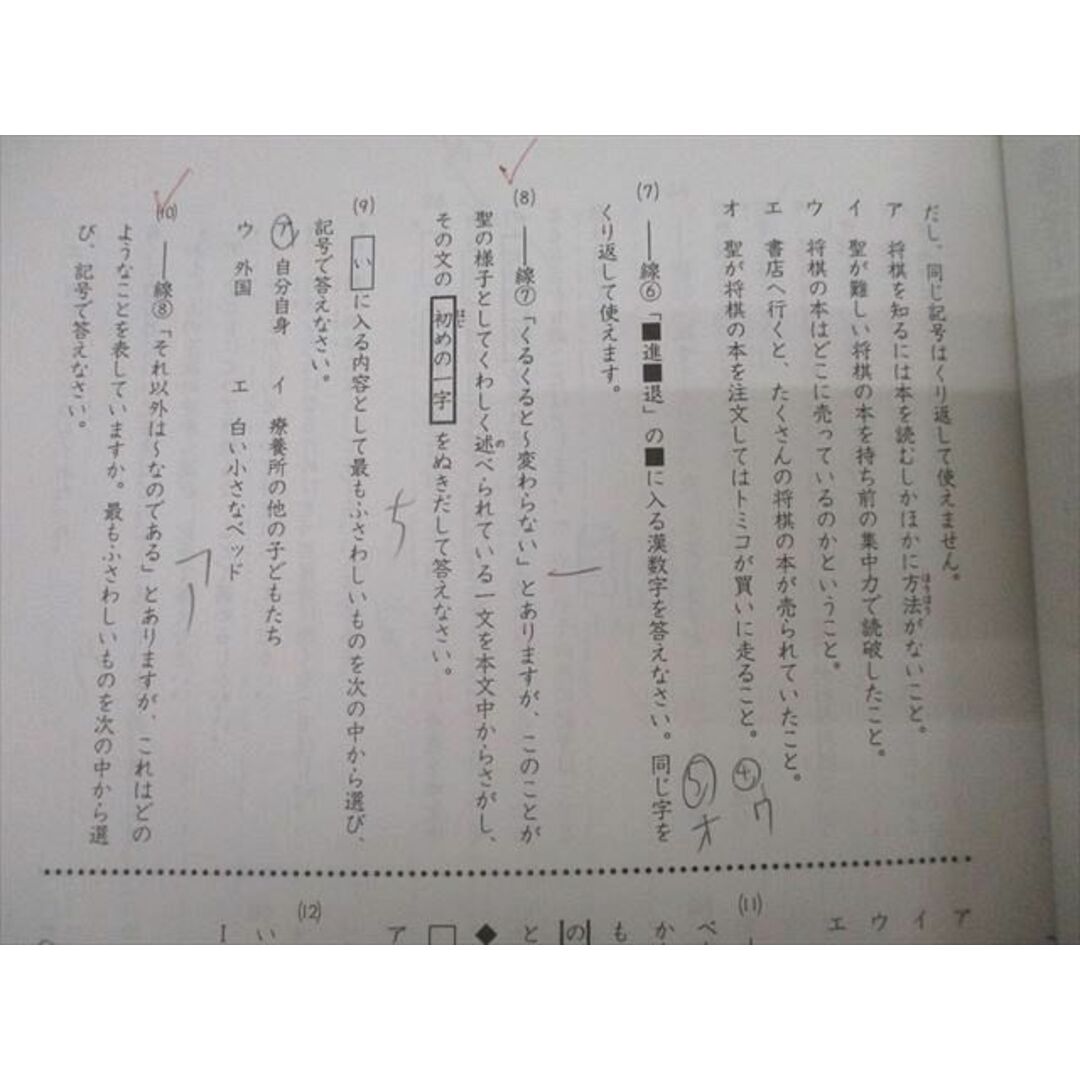 だし、同じ記号はくり返して使えません。
ア 将棋を知るには本を読むしかほかに方法がないこと。
ほうほう
イ 聖が難しい将棋の本を持ち前の集中力で読破したこと。
ウ 将棋の本はどこに売っているのかということ。
エ 書店へ行くと、たくさんの将棋の本が売られていたこと。
オ 聖が将棋の本を注文してはトミコが買いに走ること。
④ウ
⑤オ
(7) ――線⑥「■進■退」の■に入る漢数字を答えなさい。同じ字を
くり返して使えます。
一
(8) ――線⑦「くるくると〜変わらない」とありますが、このことが
聖の様子としてくわしく述べられている一文を本文中からさがし、
の
その文の初めの一字をぬきだして答えなさい。
はじ
ち
(9) いに入る内容として最もふさわしいものを次の中から選び、
記号で答えなさい。
ア 自分自身 イ 療養所の他の子どもたち
ウ 外国 エ 白い小さなベッド
ア
(10) ――線⑧「それ以外は〜なのである」とありますが、これはどの
ようなことを表していますか。最もふさわしいものを次の中から選
び、記号で答えなさい。
ア
イ
ウ
エ
(11)
べ
か
も
の
と
◆
ア
(12)
い